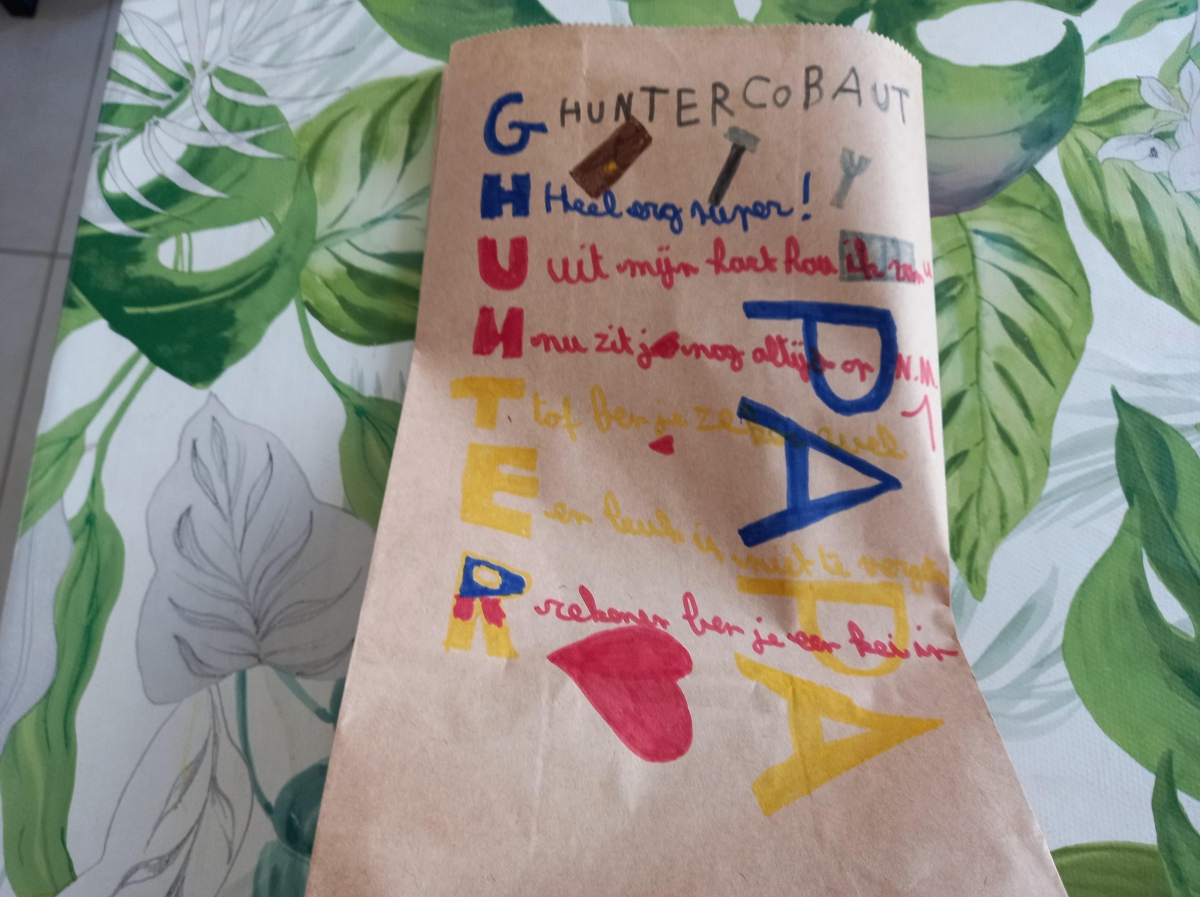 GHUNTER COBAUT
H Heel erg super!
U uit mijn hart hou ik van u
N nu zit je nog altijd op N.M. 1
T tof ben je zeker wel
E en leuk is niet te
R rekenen ben je een kei in
PAPA